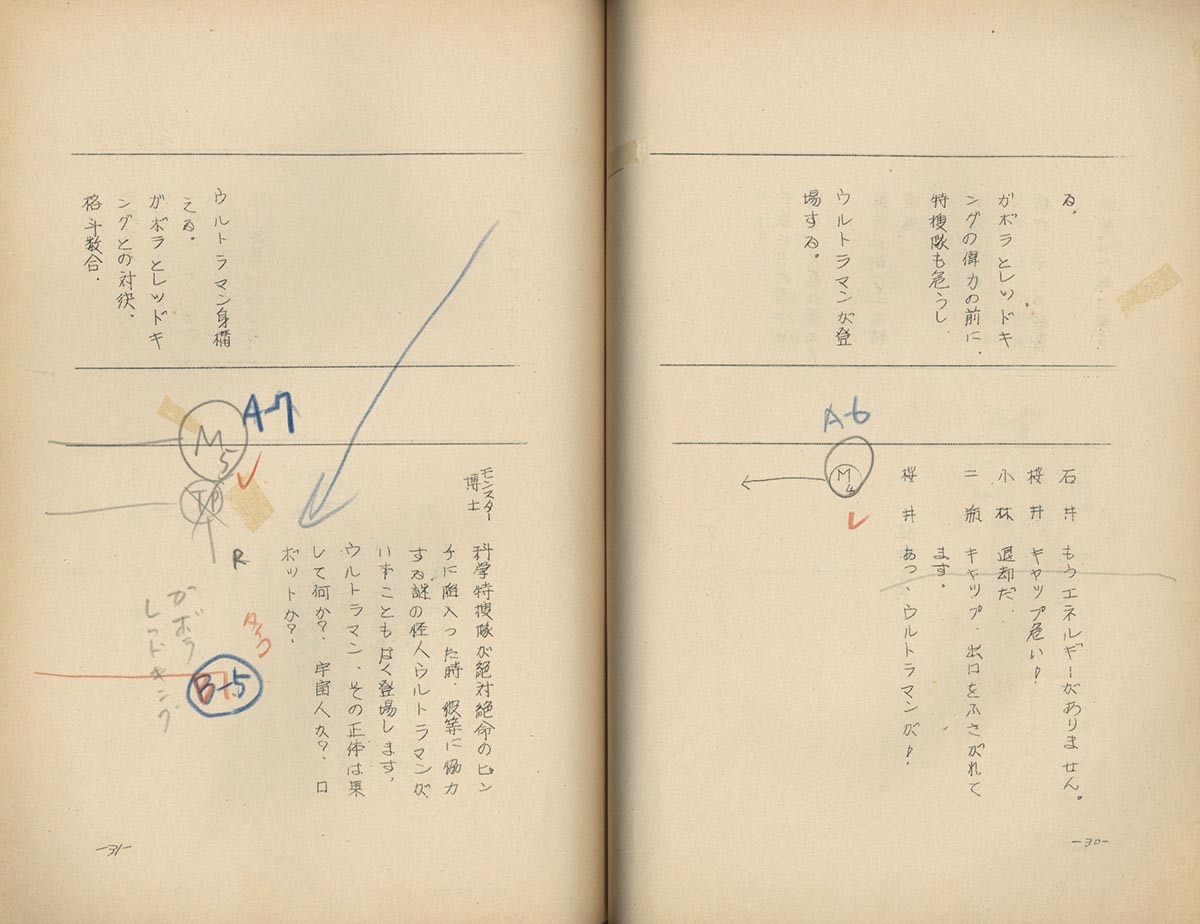 る。
ガボラとレッドキ
ングの偉力の前に、
特捜隊も危うし
ウルトラマンが登
場する。
A-6
M4
石井 もうエネルギーがありません。
桜井 キャップ危い!
小林 退却だ、
二瓶 キャップ、出口をふさがれて
ます。
桜井 あっ、ウルトラマンが!
-30-
ウルトラマン身構
える。
ガボラとレッドキ
ングとの対決、
格斗数合、
A-7
M5
モンスター
博士
科学特捜隊が絶対絶命のピン
チに陥入った時、彼等に協力
する謎の怪人ウルトラマンが、
いずこともなく登場します。
ウルトラマン、その正体は果
して何か?、宇宙人か?、ロ
ボットか?、
R
B-5
ガボラ
レッドキング
-31-